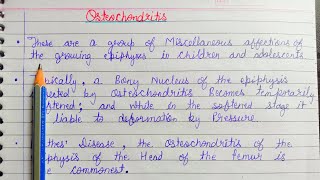 Osteochondritis
These are a group of Miscellaneous affections of
the growing epiphyses in children and adolescents
ically, a Bony Nucleus of the epiphysis
ected by Osteochondritis Becomes temporarily
ftened; and while in the softened stage it
liable to deformation by Pressure.
thes' Disease, the Osteochondritis of the
physis of the Head of the femur is
e commonest.